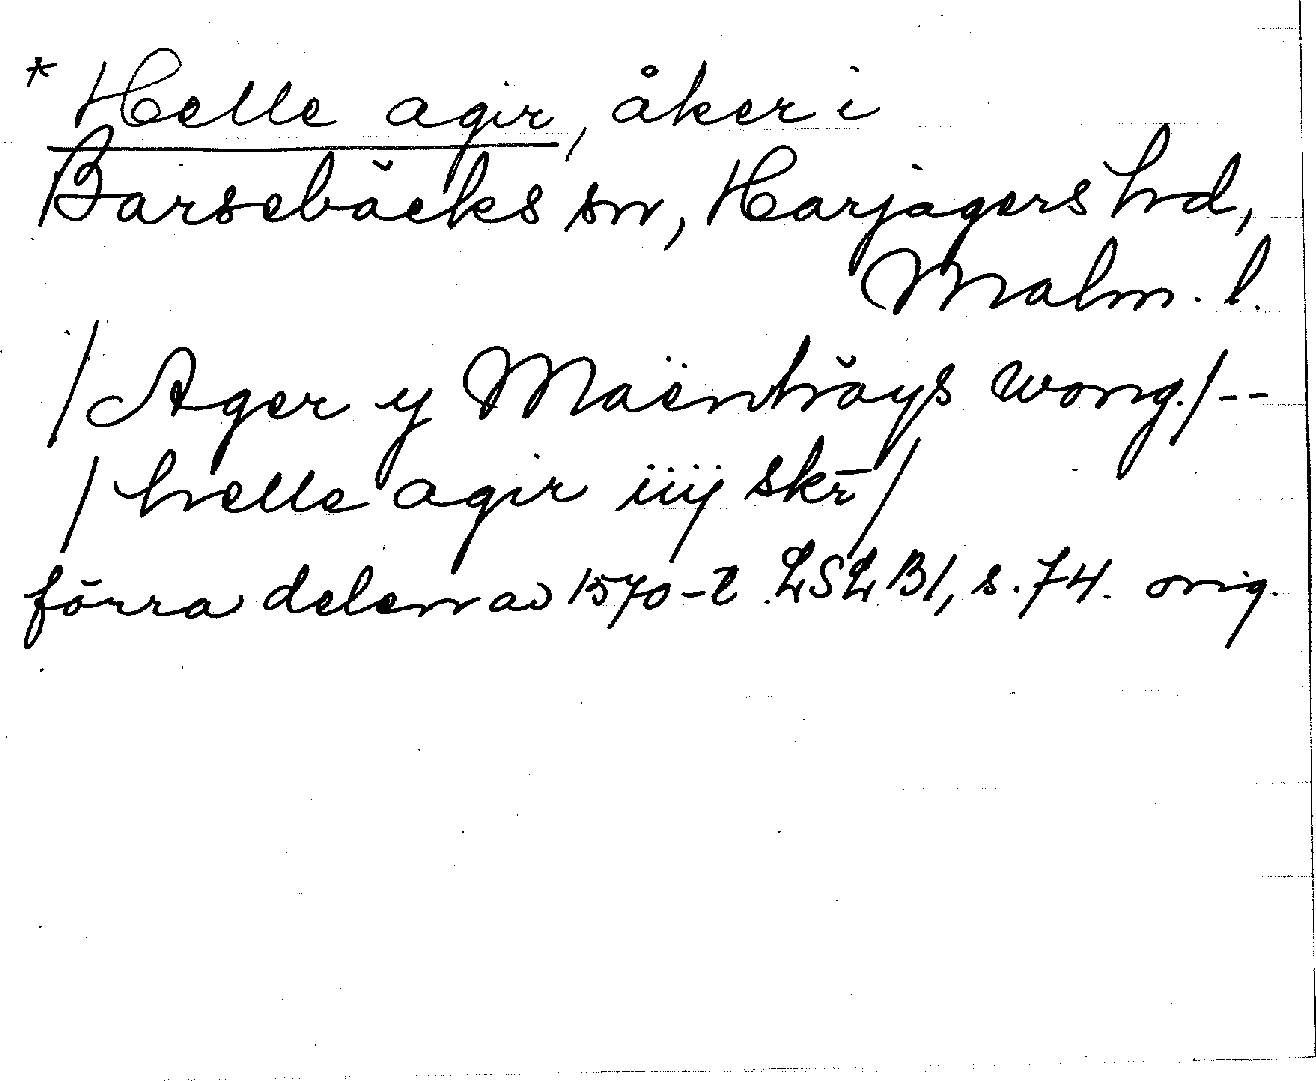 * Helle agir, åker i
Barsebäcks sn, Harjagers hd,
Malm. l.
/Ager y Maenhöys wong./--
/helle agir iiij skr̄/
förra delen av 1570-t. LSLB1, s. 74. orig.